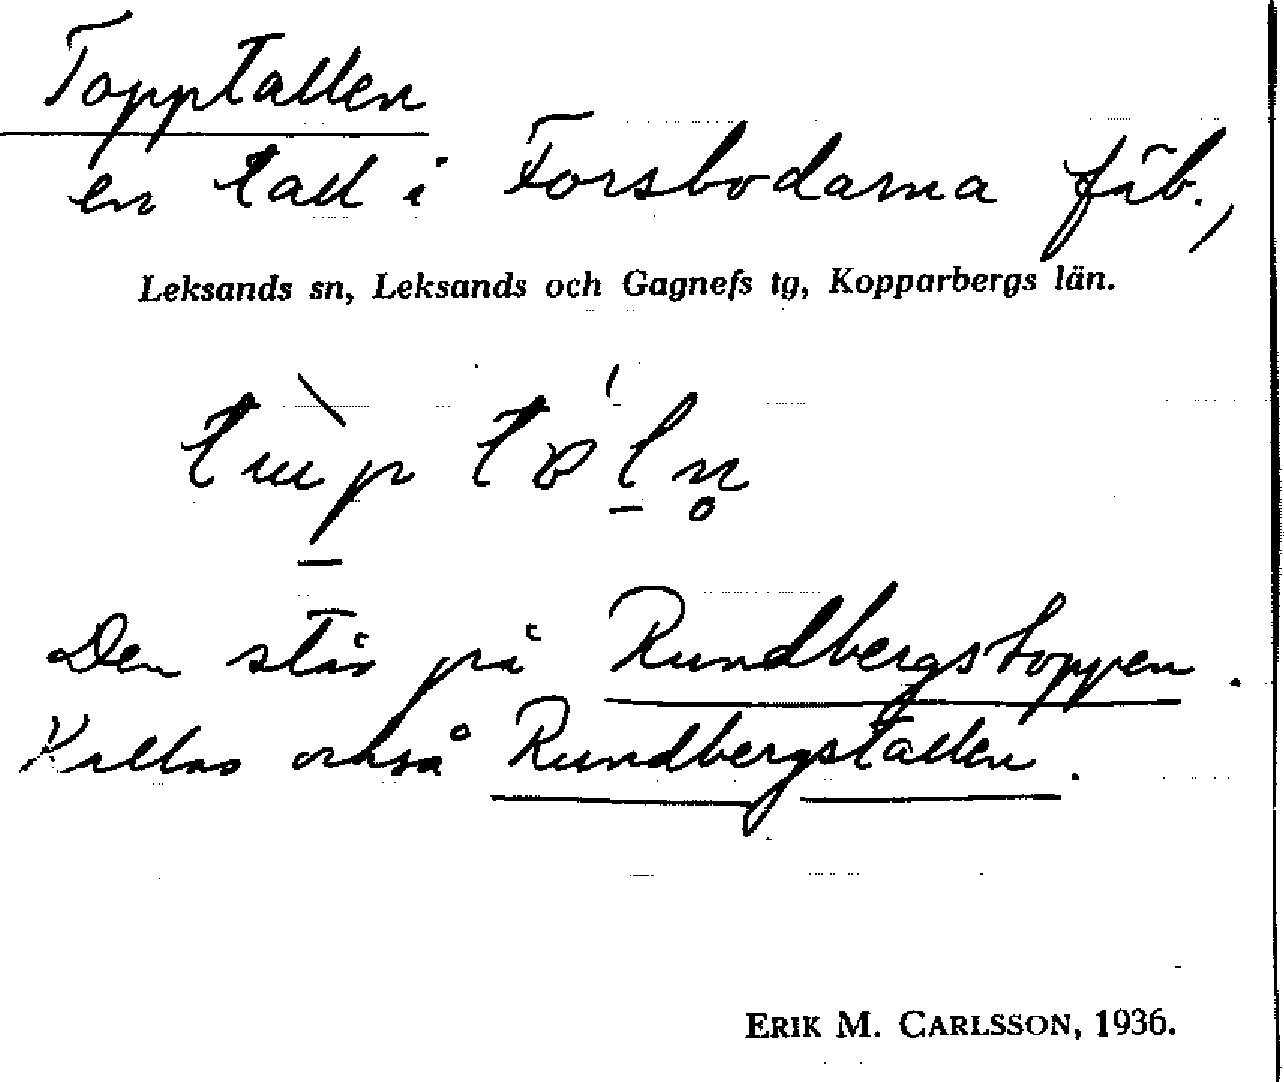 Topptallen
en tall i Forsbodarna fäb.,
Leksands sn, Leksands och Gagnefs tg, Kopparbergs län.
Den står på Rundbergstoppen.
Kallas också Rundbergstallen.
ERIK M. CARLSSON, 1936.